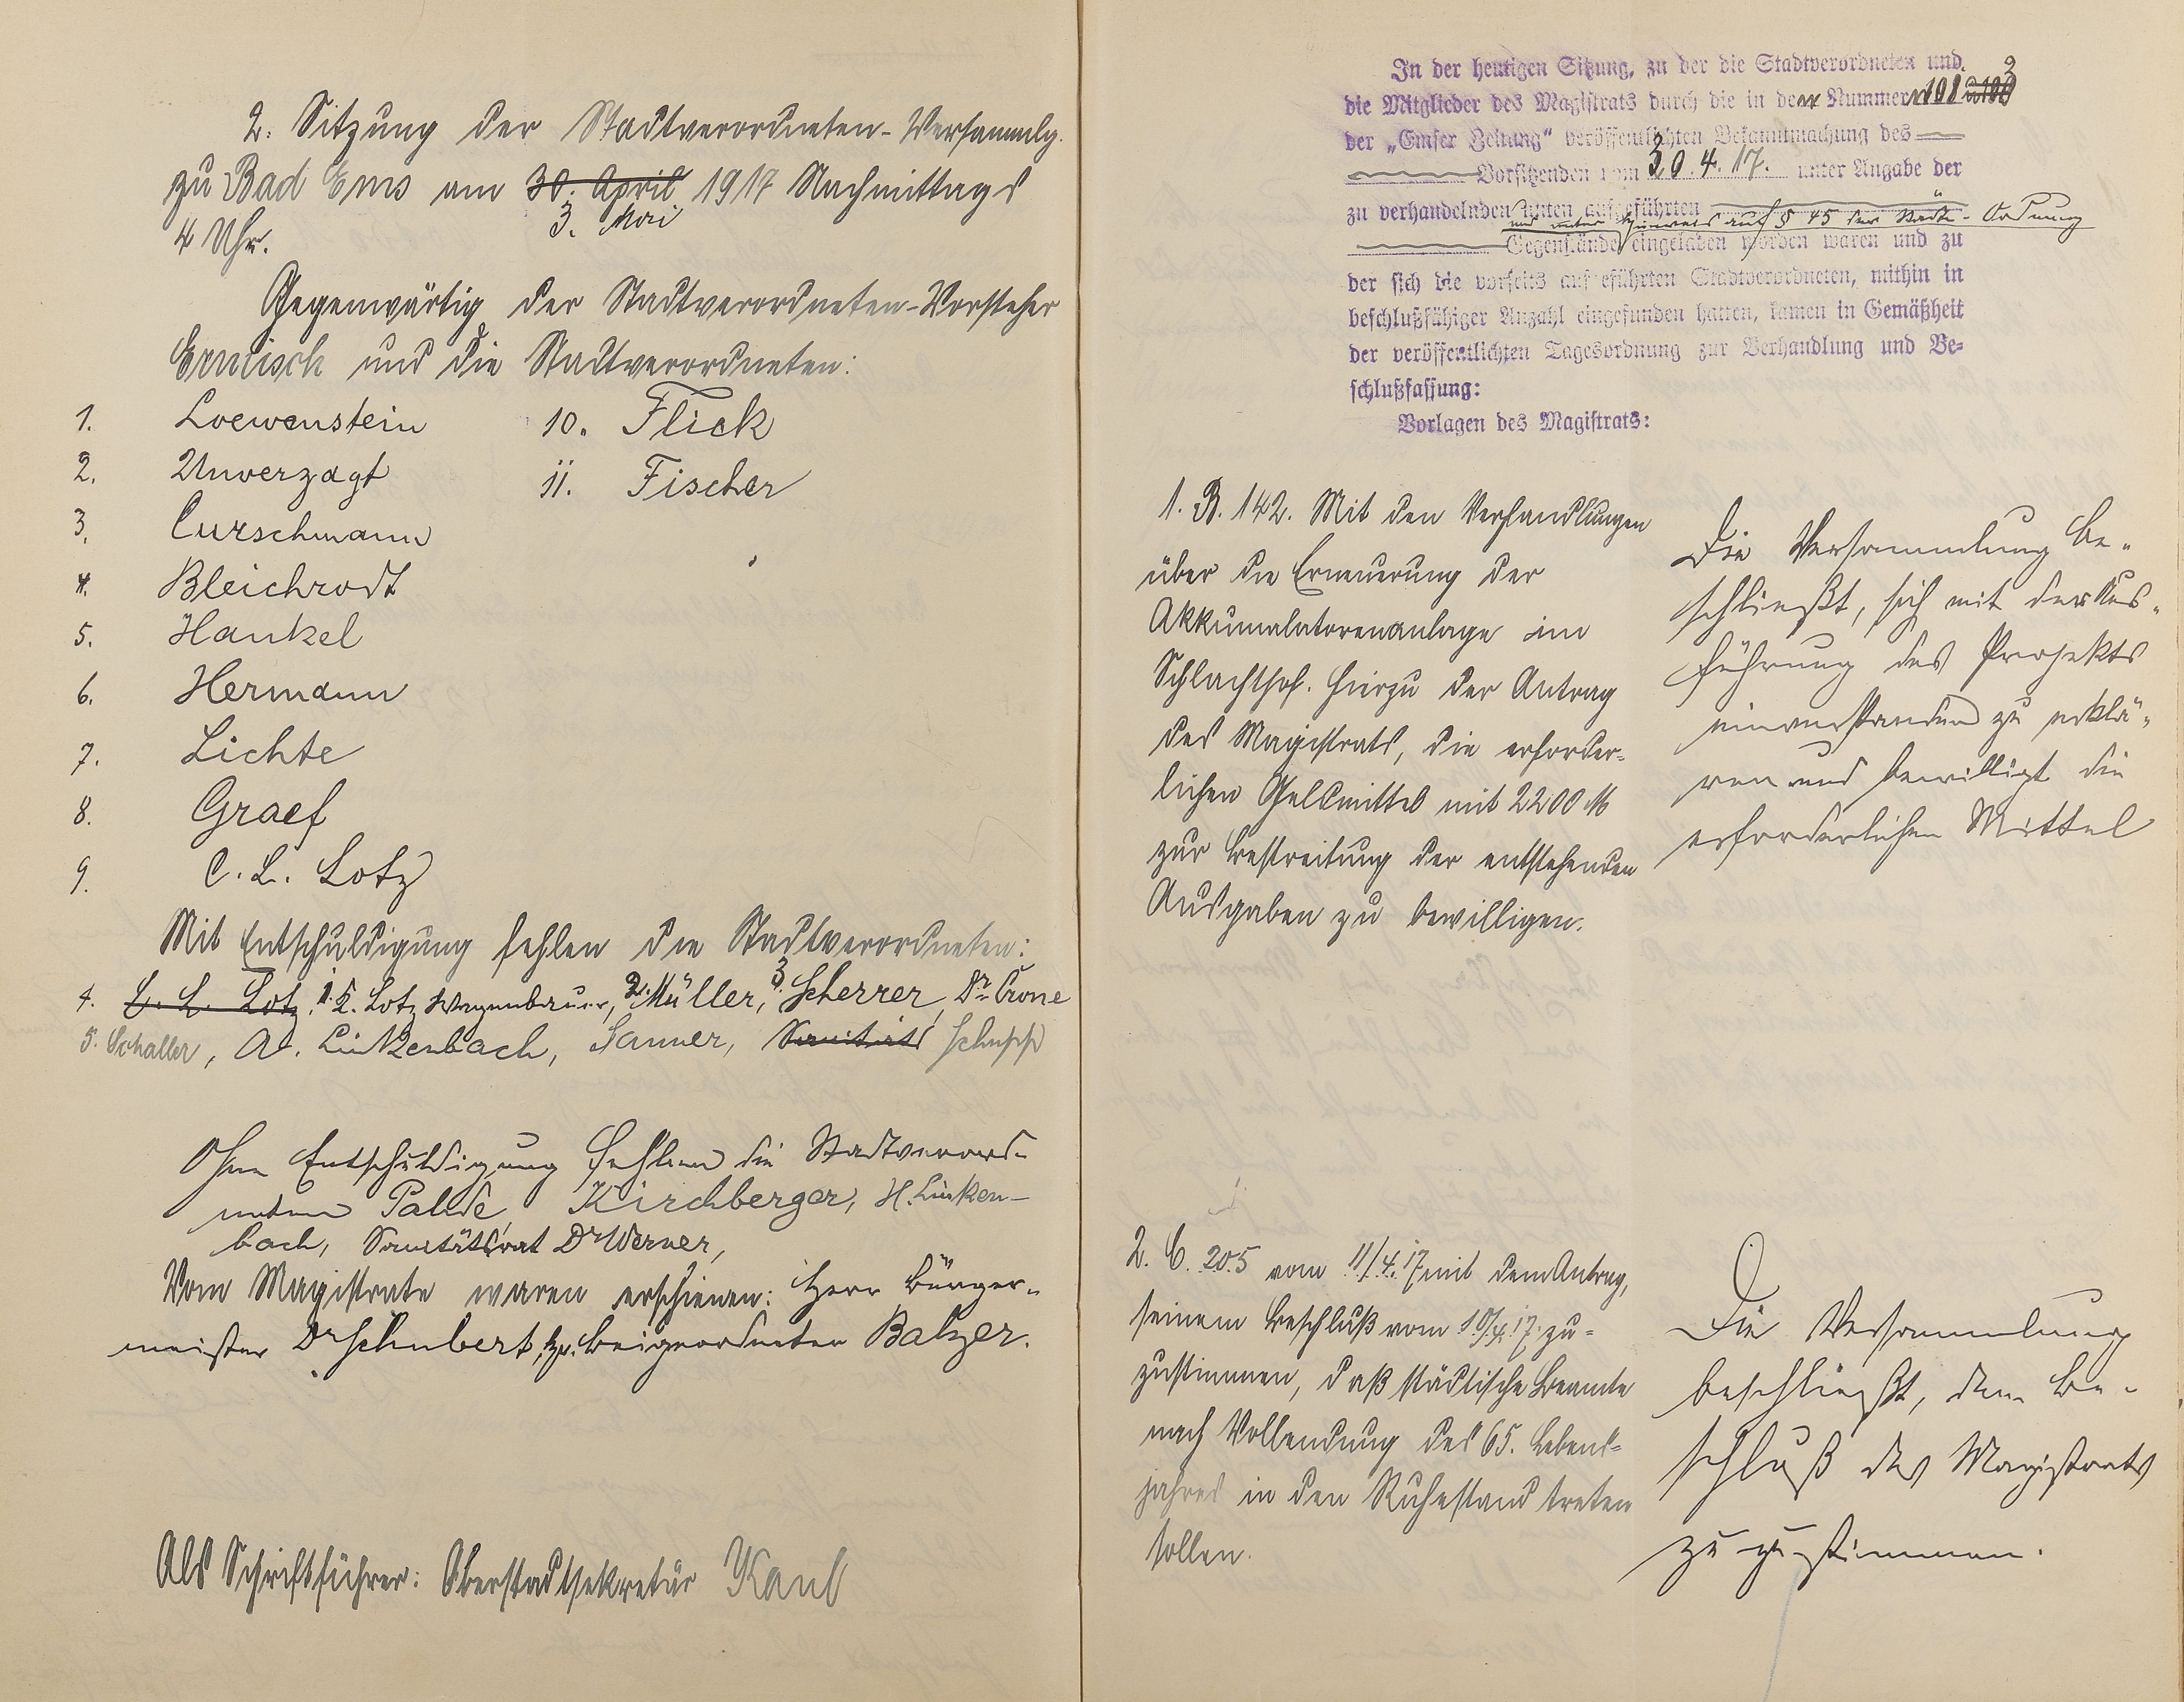 2. Sitzung der Stadtverordneten-Versammlg.
zu Bad Ems am 30. April 1917 Nachmittags
3. Mai
4 Uhr.
Gegenwärtig der Stadtverordneten-Vorsteher
Ermisch und die Stadtverordneten:
1. Loewenstein 10. Flick
2. Unverzagt 11. Fischer
3. Curschmann
4. Bleichrodt
5. Hankel
6. Hermann
7. Lichte
8. Graef
9. C. L. Lotz
Mit Entschuldigung fehlen die Stadtverordneten:
4. C. L. Lotz, 1. K. Lotz Wagenbauer, 2. Müller, 3. Scherrer, Dr. Crone
5. Schaller, A. Linkenbach, Sanner, Sanitäts Schupp
Ohne Entschuldigung fehlen die Stadtverord-
neten Kirchberger, H. Linken-
bach, Sanitätsrat Dr Werner,
Vom Magistrate waren erschienen: Herr Bürger-
meister Dr Schubert, Hr. Beigeordneter Balzer.
Als Schriftführer: Oberstadtsekretär Kaul
In der heutigen Sitzung, zu der die Stadtverordneten und
die Mitglieder des Magistrats durch die in den Nummern 101 u 100 3
der „Emser Zeitung“ veröffentlichten Bekanntmachung des
Vorsitzenden vom 30.4.17. unter Angabe der
zu verhandelnden unten aufgeführten
und unter Hinweis auf § 45 der Städte-Ordnung
Gegenstände eingeladen worden waren und zu
der sich die vorseits aufgeführten Stadtverordneten, mithin in
beschlußfähiger Anzahl eingefunden hatten, kamen in Gemäßheit
der veröffentlichten Tagesordnung zur Verhandlung und Be-
schlußfassung:
Vorlagen des Magistrats:
1. B. 142. Mit den Verhandlungen
über die Erneuerung der
Akkumulatorenanlage im
Schlachthof. Hierzu der Antrag
des Magistrats, die erforder-
lichen Geldmittel mit 2200 M
zur Bestreitung der entstehenden
Ausgaben zu bewilligen.
Die Versammlung be-
schließt, sich mit der Aus-
führung des Projekts
einverstanden zu erklä-
ren und bewilligt die
erforderlichen Mittel
2. C. 205 vom 11/4.17 mit dem Antrag,
seinem Beschluß vom 10/4.17. zu-
zustimmen, daß städtische Beamte
nach Vollendung des 65. Lebens-
jahres in den Ruhestand treten
sollen.
Die Versammlung
beschließt, dem Be-
schluß des Magistrats
zuzustimmen.